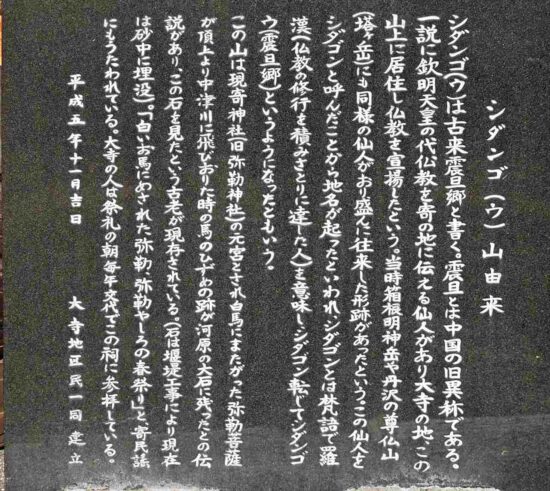 シダンゴ(ウ)山由来
シダンゴ(ウ)は古来震旦郷と書く。震旦とは中国の旧異称である。
一説に欽明天皇の代仏教を寄の地に伝える仙人があり大寺の地、この
山上に居住し仏教を宣揚したという。当時箱根明神岳や丹沢の尊仏山
(塔ヶ岳)にも同様の仙人がおり盛んに往来した形跡があったという。この仙人を
シダゴンと呼んだことから地名が起ったといわれ、シダゴンとは梵語で羅
漢(仏教の修行を積みさとりに達した人)を意味し、シダゴン転じてシダンゴ
ウ(震旦郷)というようになったともいう。
この山は現寄神社(旧弥勒神社)の元宮とされ白馬にまたがった弥勒菩薩
が頂上より中津川に飛びおりた時の馬のひずめの跡が河原の大石に残ったとの伝
説があり、この石を見たという古老が現存されている。(石は堰堤工事により現在
は砂中に埋没)。「白いお馬にめされた弥勒、弥勒やしろの春祭り」と寄民謡
にもうたわれている。大寺の人は祭礼の朝毎年交代でこの祠に参拝している。
平成五年十一月吉日　大寺地区民一同建立